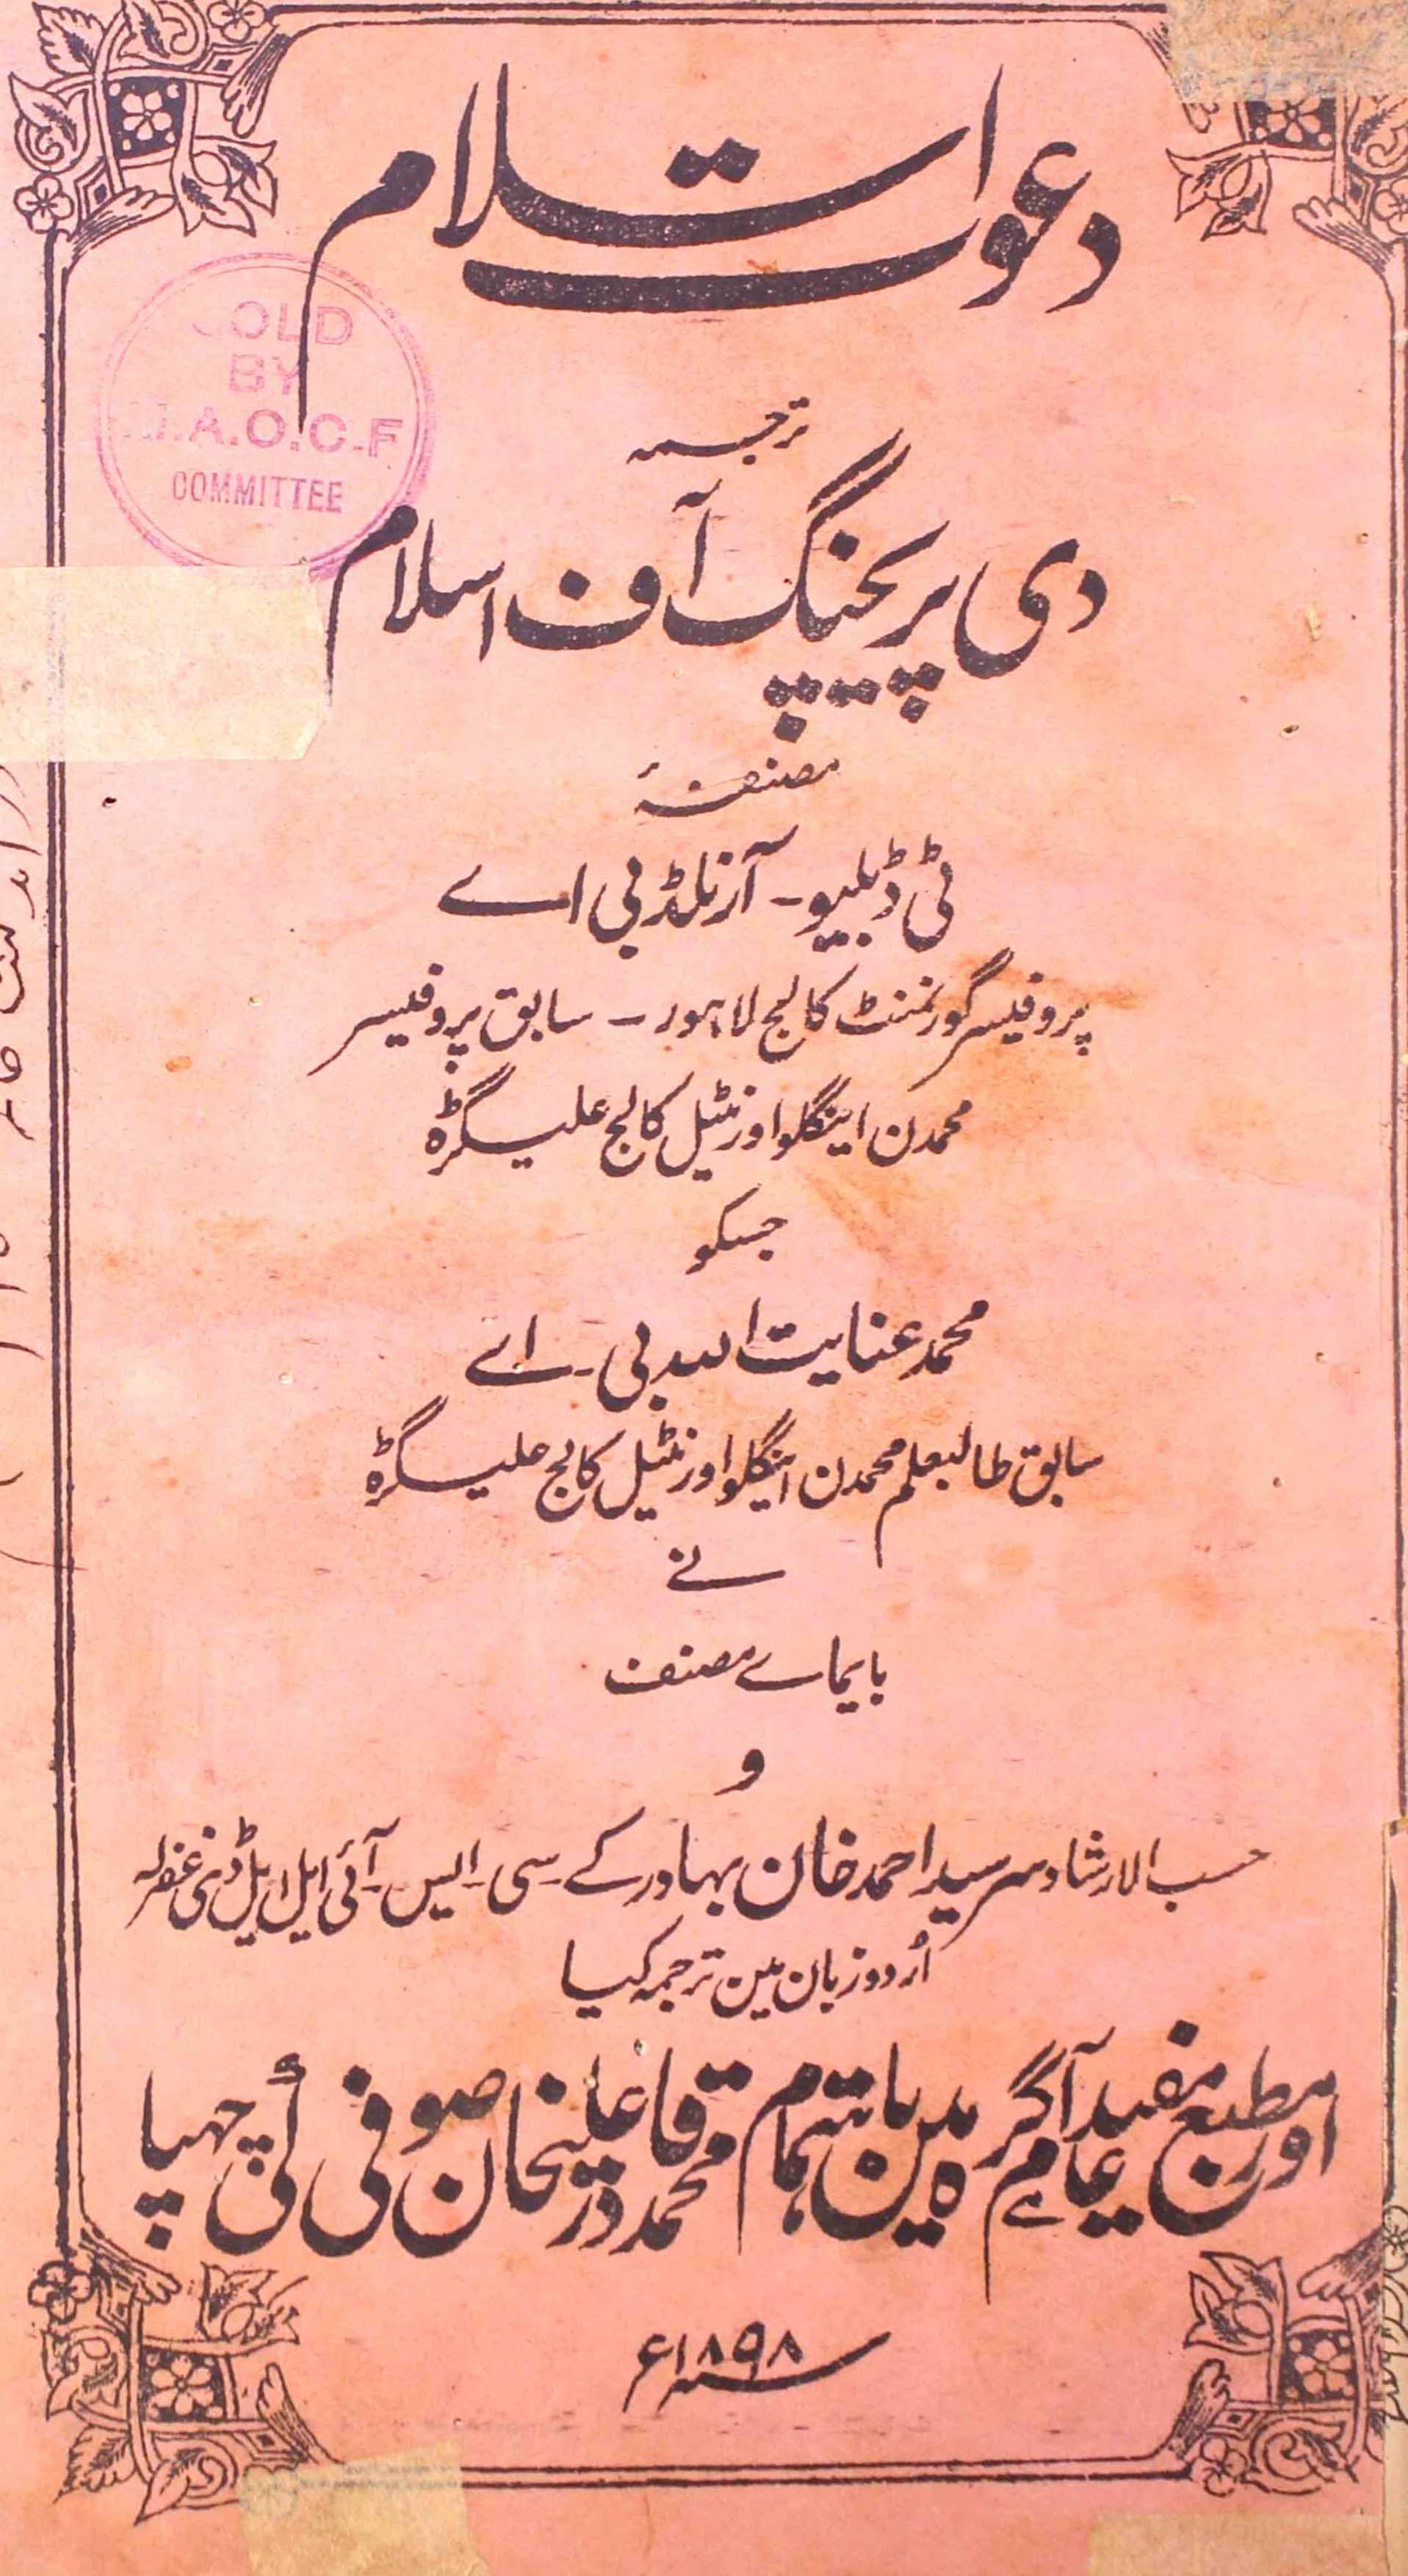 دعوت اسلام
SOLD
BY
M.A.O.C.F
COMMITTEE
ترجمہ
دی پریچینگ آف اسلام
مصنفۂ
ٹی ڈبلیو۔ آرنلڈ بی اے
پروفیسر گورنمنٹ کالج لاہور ۔ سابق پروفیسر
محمدن اینگلو اورنٹیل کالج علیگڑہ
جسکو
محمد عنایت اللہ بی۔ اے
سابق طالبعلم محمدن اینگلو اورنٹیل کالج علیگڑہ
نے
بایماے مصنف
و
حسب الارشاد سر سید احمد خان بہادر کے۔ سی۔ ایس۔ آئی ایل ایل ڈی غفرلہ
اُردو زبان مین ترجمہ کیا
اور مطبع مفید عام آگرہ مین باہتمام محمد قادر علیخان صوفی چھپا
سنہ ۱۸۹۸ء